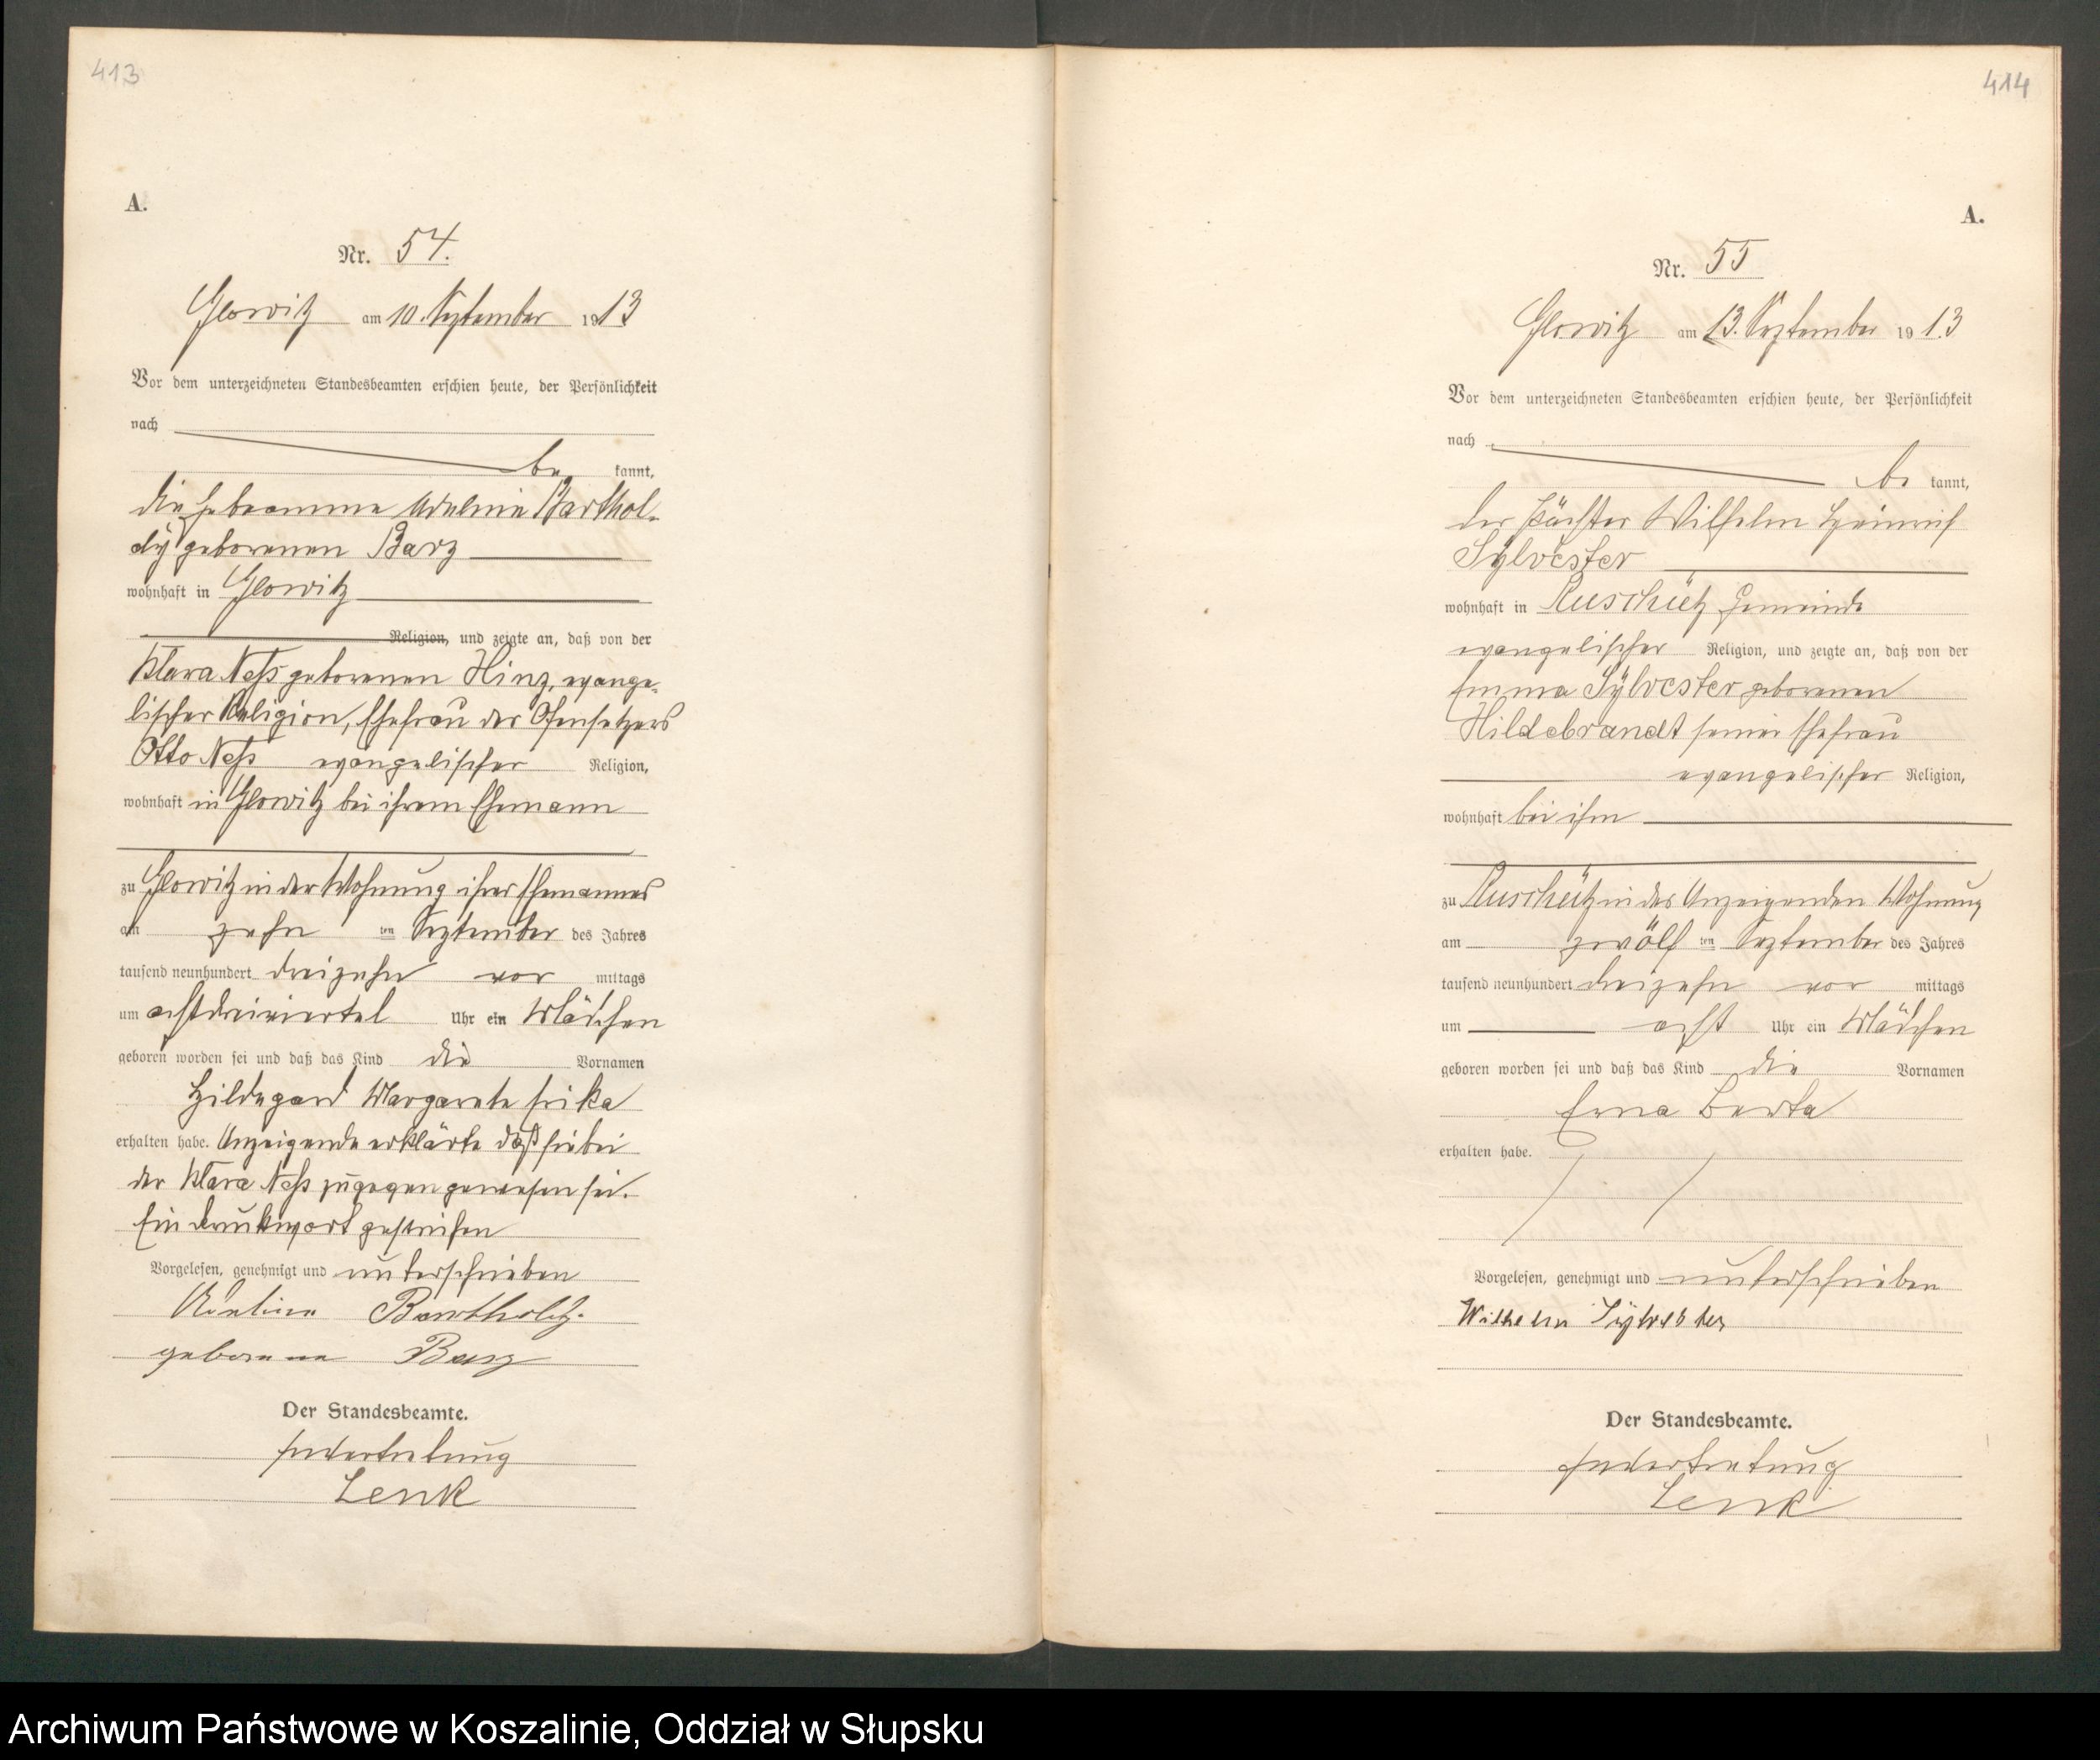 413
A.
Nr. 54.
Glowitz am 10. September 1913
Vor dem unterzeichneten Standesbeamten erschien heute, der Persönlichkeit
nach
be kannt,
die Hebeamme Adeline Barthol-
dy geborenen Barz
wohnhaft in Glowitz
Religion, und zeigte an, daß von der
Klara Neß geborenen Hinz, evange-
lischer Religion, Ehefrau des Ofensetzers
Otto Neß evangelischer Religion,
wohnhaft in Glowitz bei ihrem Ehemann
zu Glowitz in der Wohnung ihres Ehemannes
am zehn ten September des Jahres
tausend neunhundert dreizehn vor mittags
um achtdreiviertel Uhr ein Mädchen
geboren worden sei und daß das Kind die Vornamen
Hildegard Margarete Erika
erhalten habe. Anzeigende erklärte daß sie bei
der Klara Neß zugegen gewesen sei.
Ein Druckwort gestrichen
Vorgelesen, genehmigt und unterschrieben
Adeline Bartholdy.
geborene Barz
Der Standesbeamte.
In Vertretung
Lenk
414
A.
Nr. 55
Glowitz am 13. September 1913
Vor dem unterzeichneten Standesbeamten erschien heute, der Persönlichkeit
nach
be kannt,
der Pächter Wilhelm Heinrich
Sylvester
wohnhaft in Ruschütz Gemeinde
evangelischer Religion, und zeigte an, daß von der
Emma Sylvester geborenen
Hildebrandt seiner Ehefrau
evangelischer Religion,
wohnhaft bei ihm
zu Ruschütz in des Anzeigenden Wohnung
am zwölf ten September des Jahres
tausend neunhundert dreizehn vor mittags
um acht Uhr ein Mädchen
geboren worden sei und daß das Kind die Vornamen
Erna Berta
erhalten habe.
Vorgelesen, genehmigt und unterschrieben
Wilhelm Sylvester
Der Standesbeamte.
In Vertretung
Lenk
Archiwum Państwowe w Koszalinie, Oddział w Słupsku